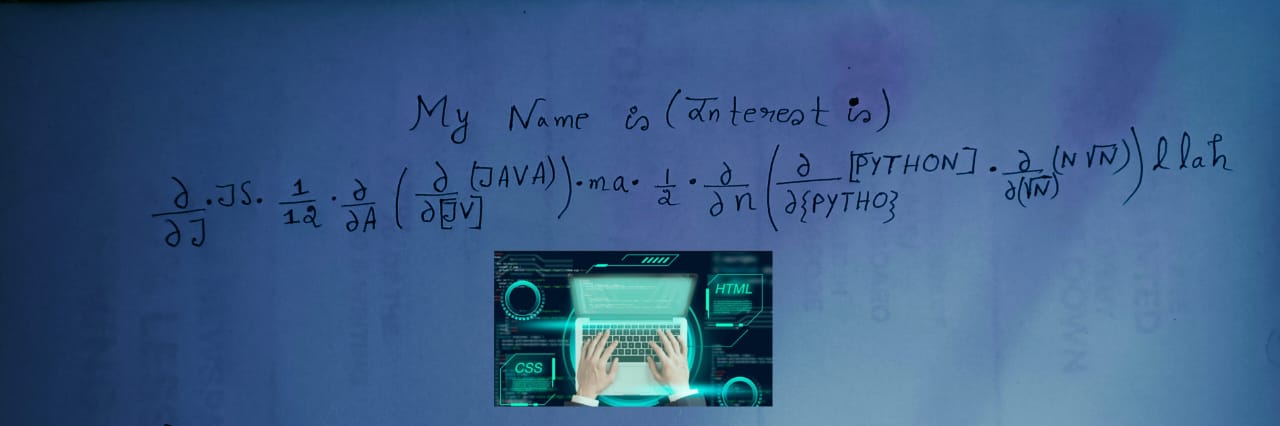 My Name is (Interest is)
∂/∂J · JS · 1/12 · ∂/∂A (∂/∂[JV] (JAVA)) · ma · 1/2 · ∂/∂n (∂/∂{PYTHO} [PYTHON] · ∂/∂(√N) (N√N)) llah
HTML
CSS